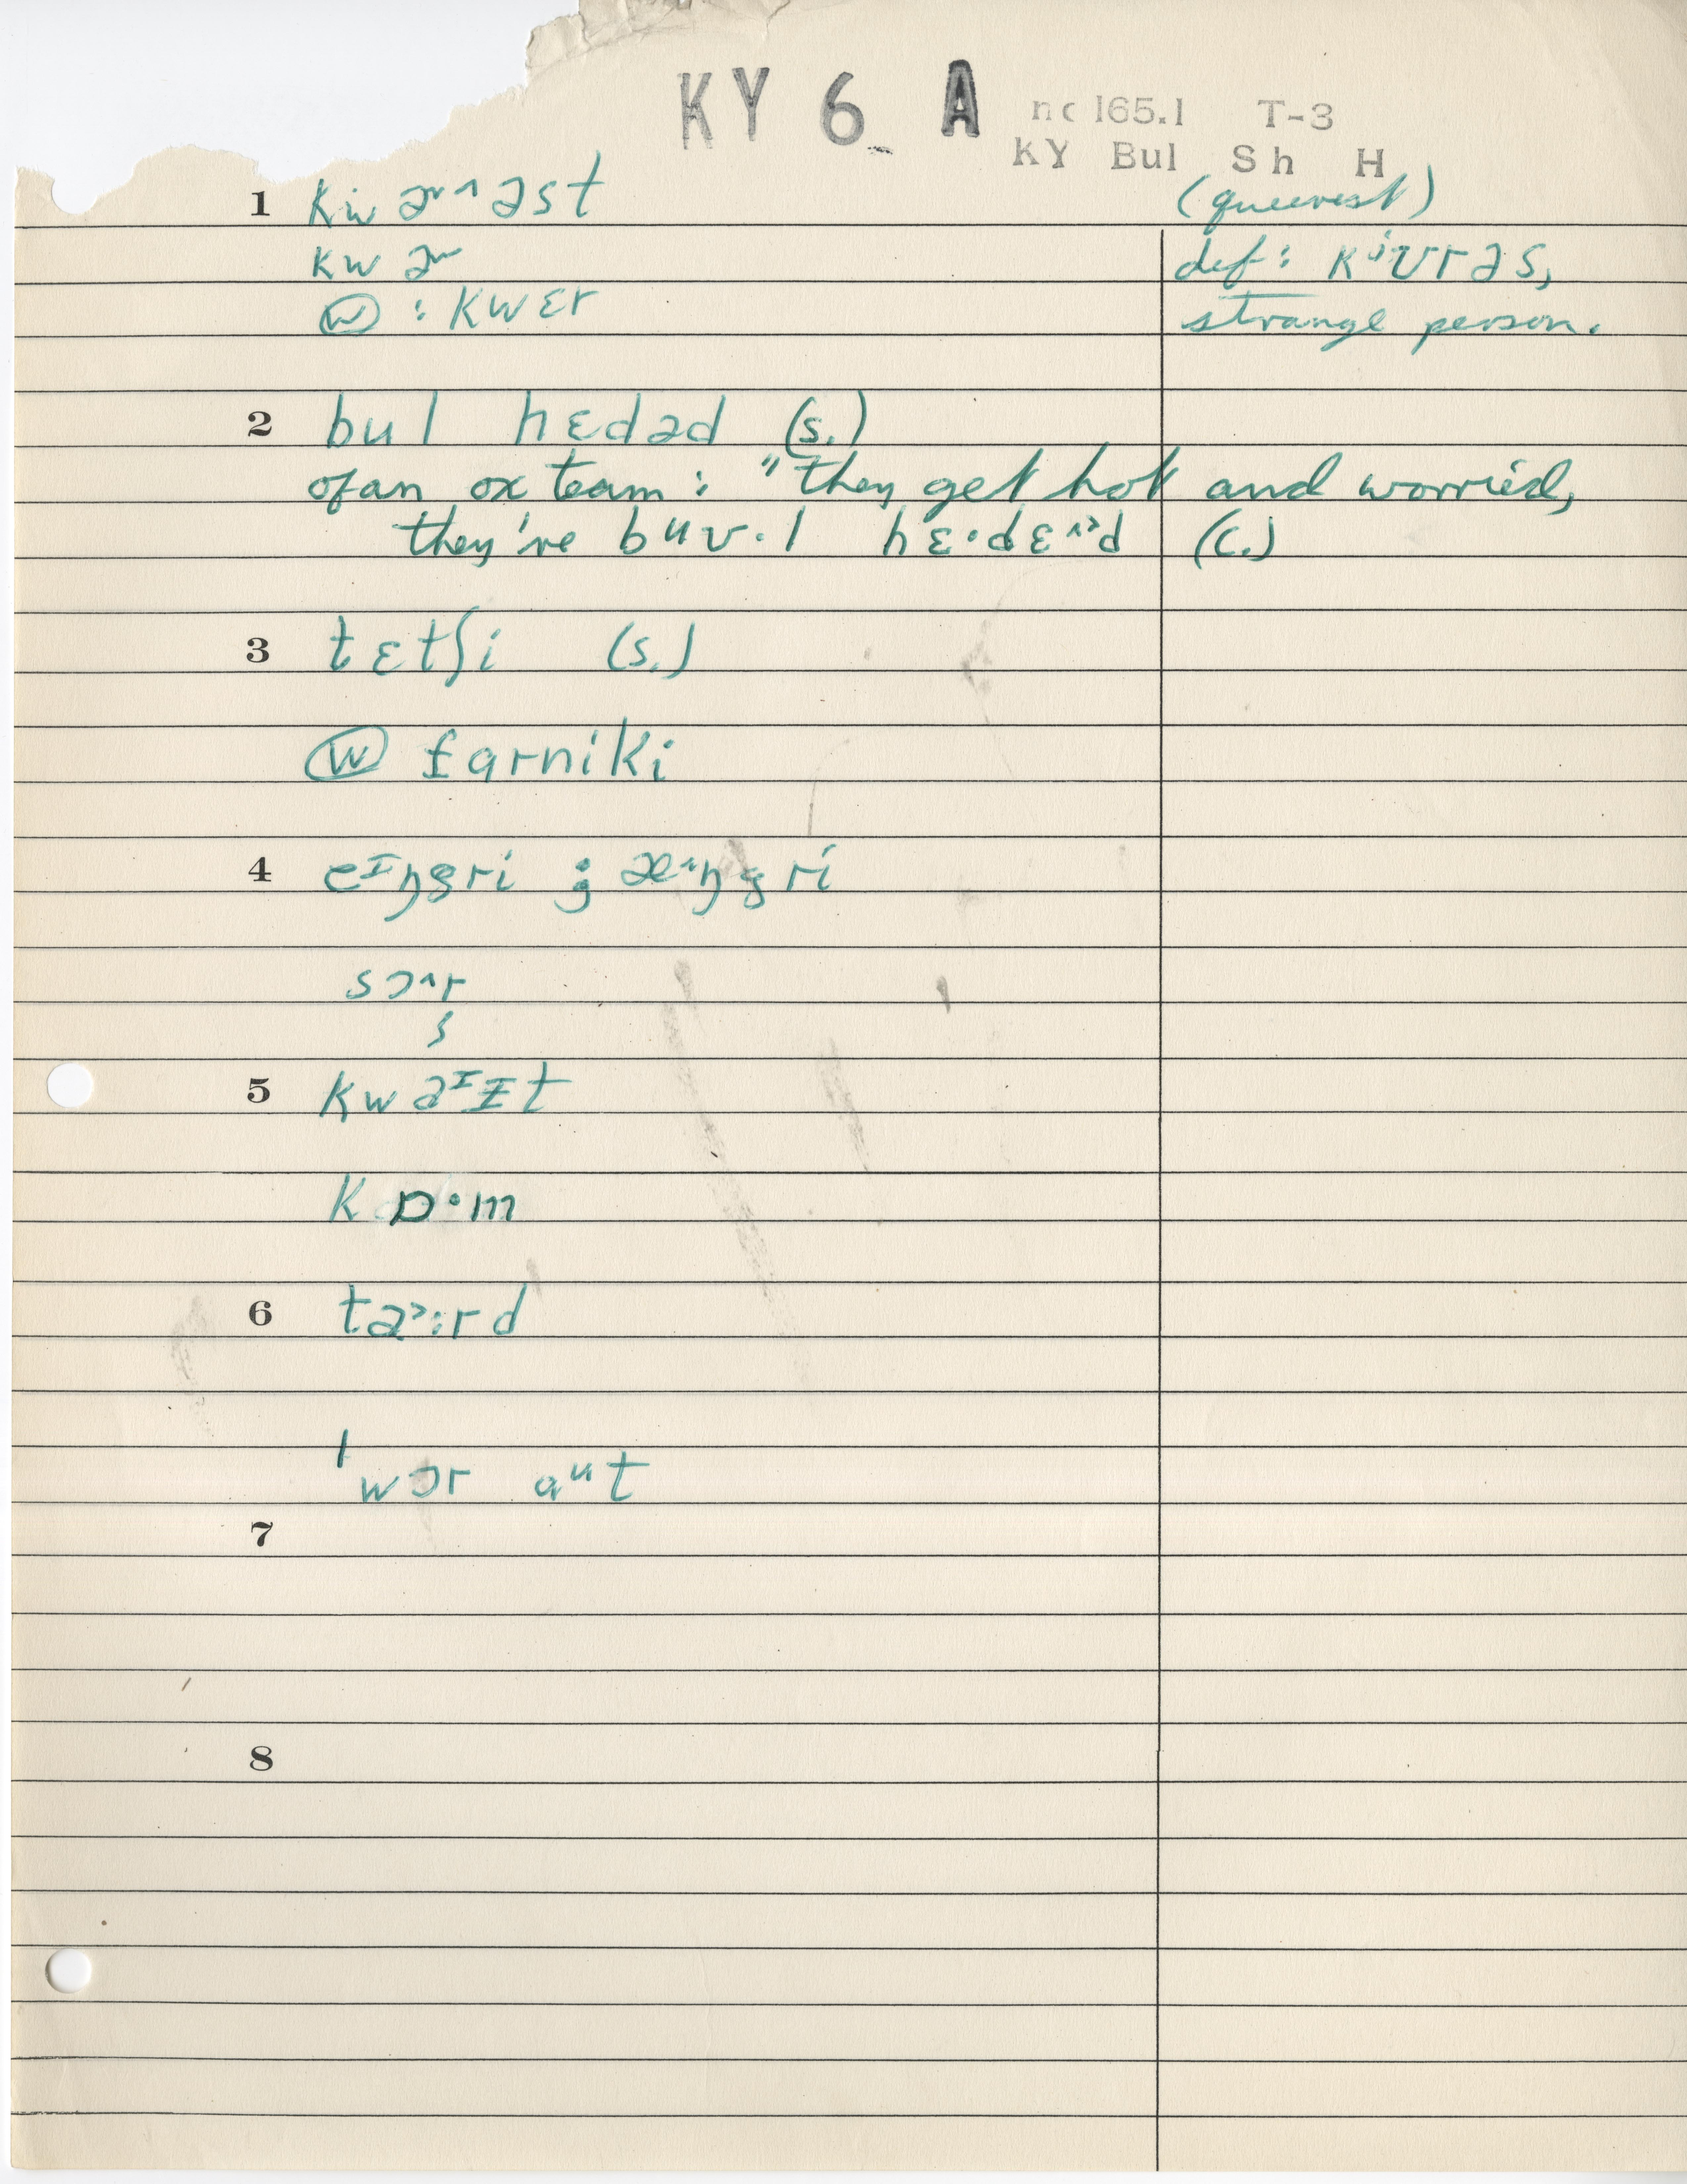 KY 6 A nc 165.1 T-3
KY Bul Sh H
1 kwɚ^əst (queerest)
kwɚ def: kʲʊrəs,
ⓦ : kwɛr strange person.
2 bul hɛdəd (s.)
of an ox team: "they get hot and worried,
they're buʊ·l hɛ·dɛ^ᵊd (c.)
3 tɛtʃi (s.)
ⓦ fɑrniki
4 eᶦŋgri ; æ^ŋgri
sɔ^r
5 kwəᶦɪt
kɒ·m
6 taᵊ:rd
ˈwɔr aᵘt
7
8